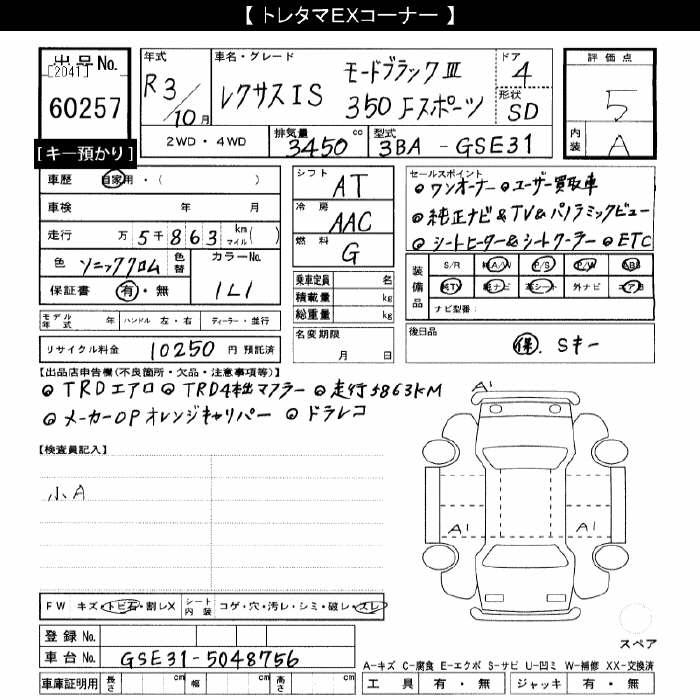 【 トレタマEXコーナー 】
出品No.
[2041]
60257
[キー預かり]
年式
R3/10月
車名・グレード
レクサスIS
モードブラックⅢ
350 Fスポーツ
ドア
4
形状
SD
評価点
5
内装
A
2WD・4WD
排気量
3450 cc
型式
3BA-GSE31
車歴 自家用・( )
車検 年 月
走行 万5千863 km マイル( )
色 ソニッククロム 色替 カラーNo. 1L1
保証書 有・無
モデル年式 年 ハンドル 左・右 ディーラー・並行
リサイクル料金 10250 円 預託済
シフト AT
冷房 AAC
燃料 G
乗車定員 名
積載量 kg
総重量 kg
名変期限
月 日
セールスポイント
◎ワンオーナー ◎ユーザー買取車
◎純正ナビ&TV&パノラミックビュー
◎シートヒーター&シートクーラー ◎ETC
装備品
S/R A/W P/S P/W ABS
純TV 純ナビ 革シート 外ナビ エアB
ナビ型番:
後日品
保. Sキー
【出品店申告欄(不良箇所・欠品・注意事項等)】
◎TRDエアロ ◎TRD4本出マフラー ◎走行5863KM
◎メーカーOPオレンジキャリパー ◎ドラレコ
【検査員記入】
小A
A1
A1 A1
FW キズ・トビ石・割レX シート内装 コゲ・穴・汚レ・シミ・破レ・スレ
スペア
登録No.
車台No. GSE31-5048756
車庫証明用 長さ cm 幅 cm 高さ cm
A-キズ C-腐食 E-エクボ S-サビ U-凹ミ W-補修 XX-交換済
工具 有・無 ジャッキ 有・無